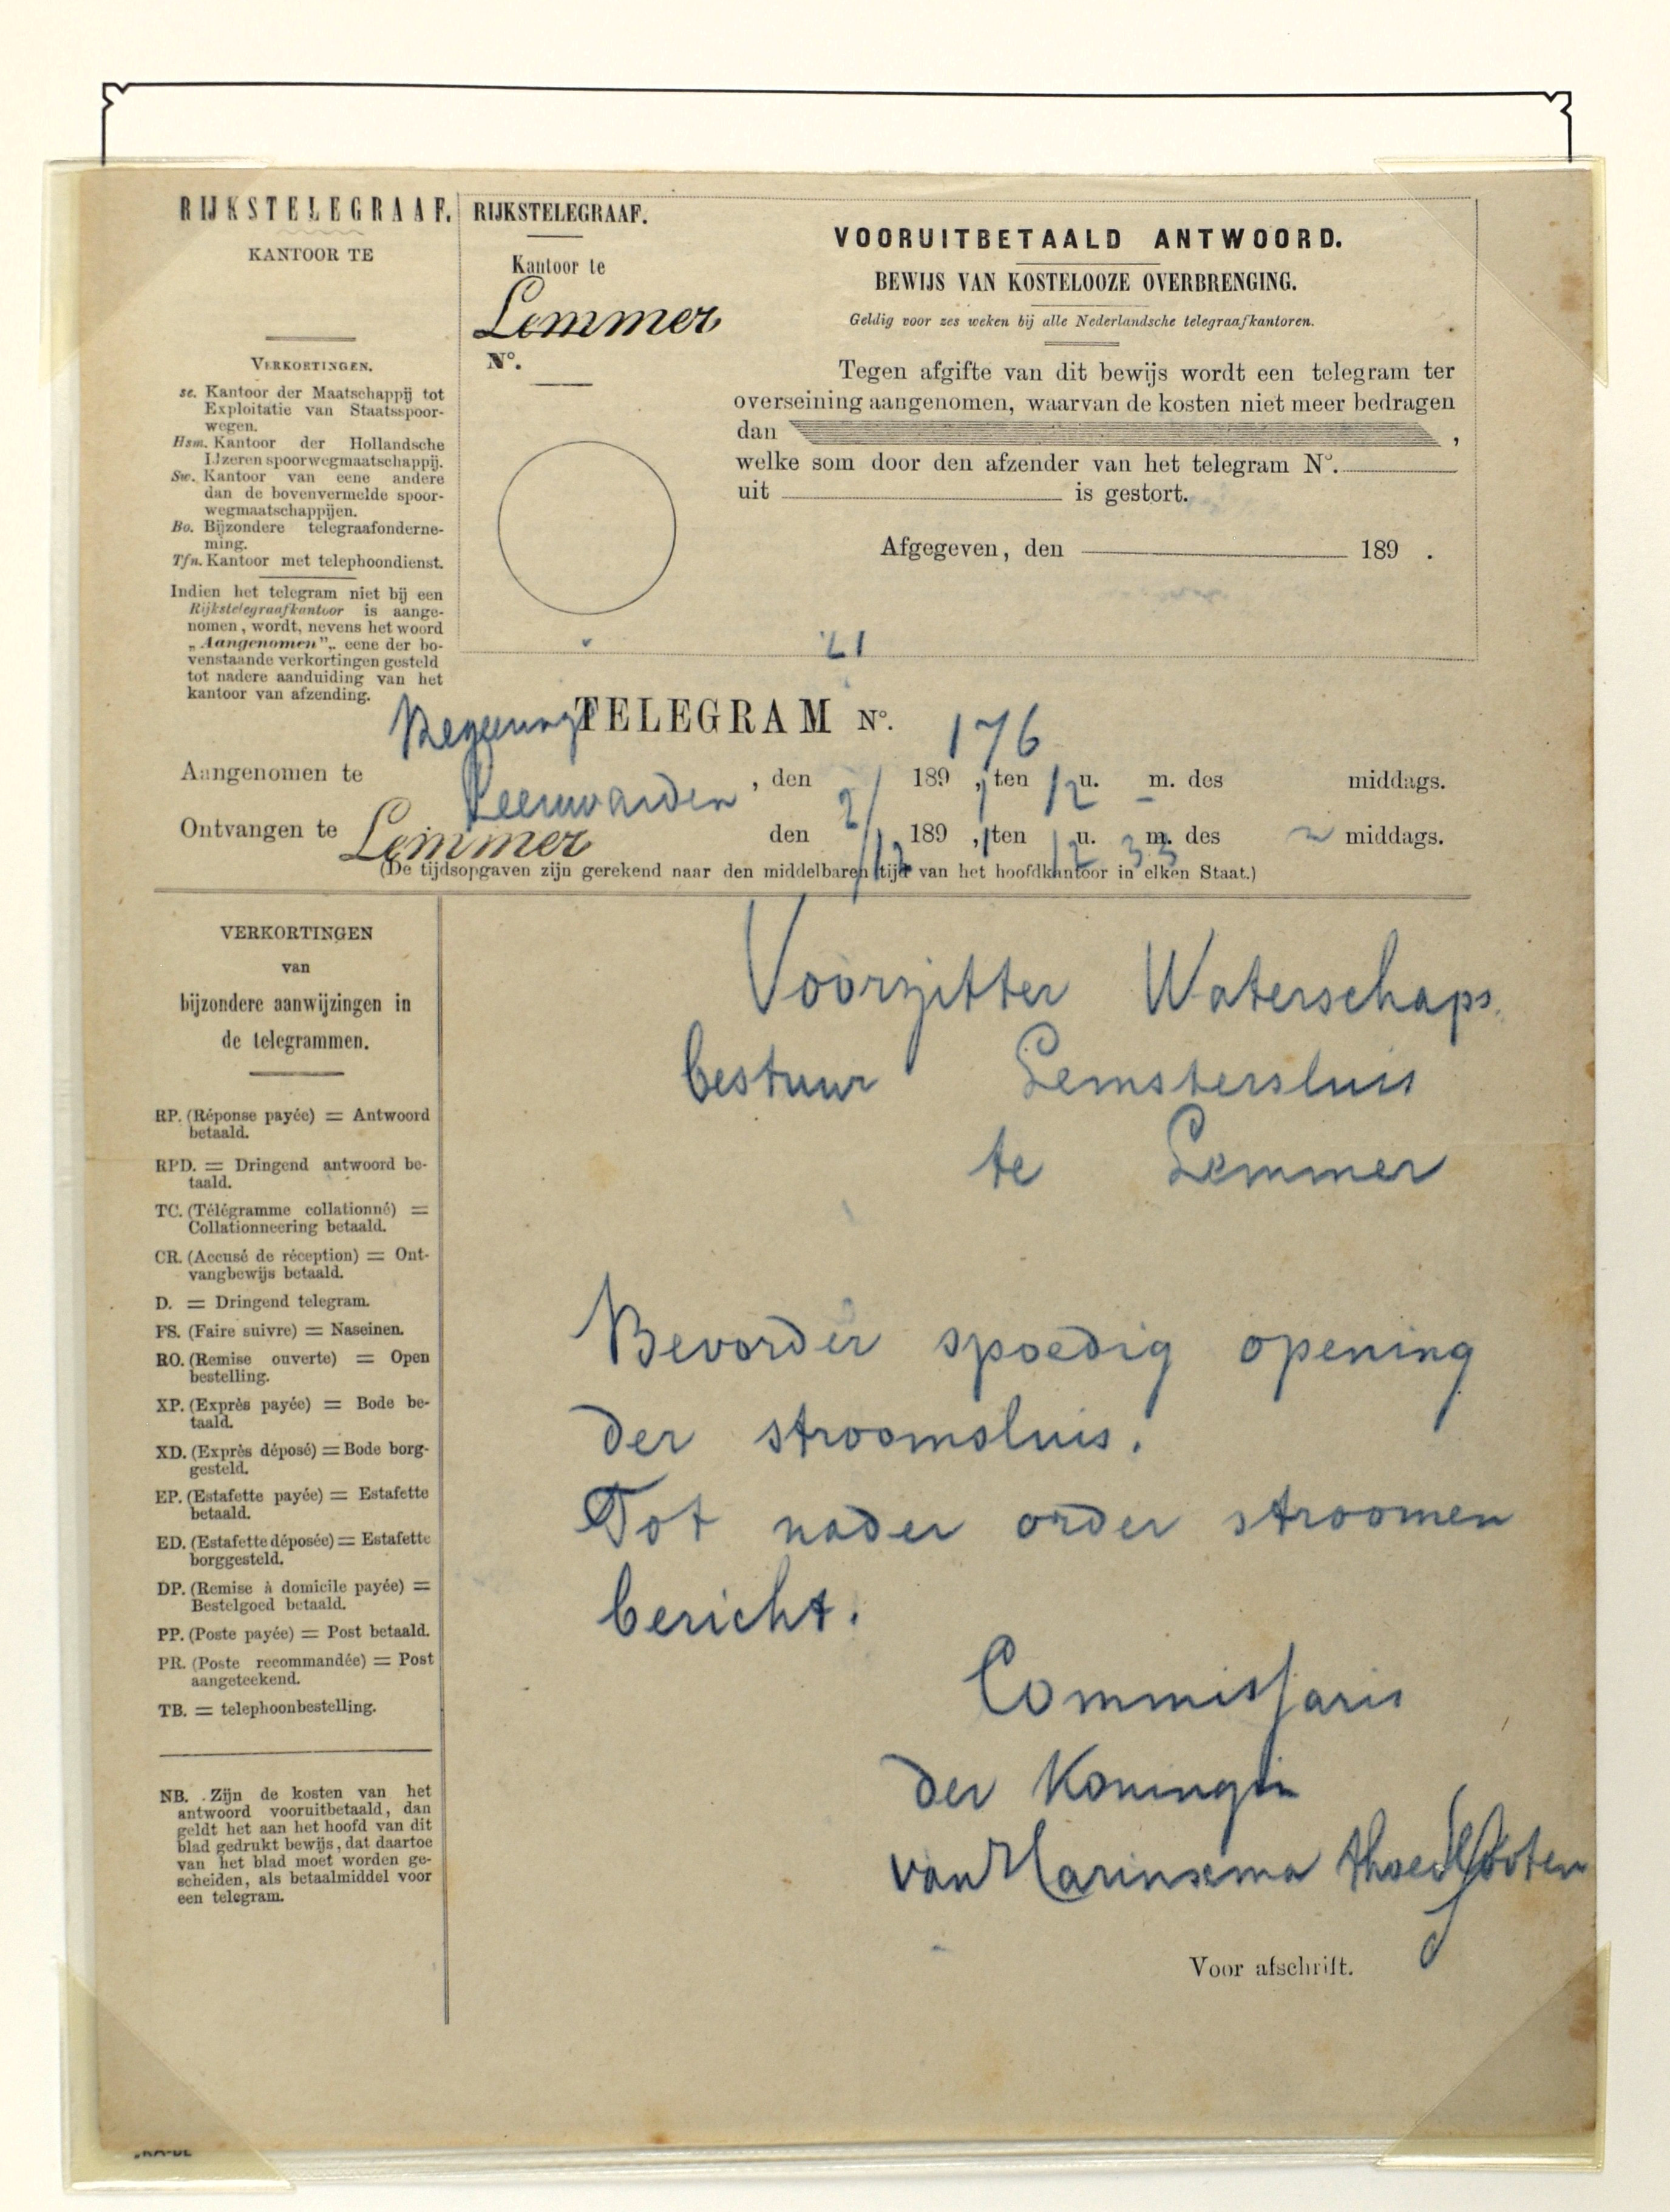 RIJKSTELEGRAAF.
KANTOOR TE
VERKORTINGEN.
se. Kantoor der Maatschappij tot
Exploitatie van Staatsspoor-
wegen.
Hsm. Kantoor der Hollandsche
IJzeren spoorwegmaatschappij.
Sw. Kantoor van eene andere
dan de bovenvermelde spoor-
wegmaatschappijen.
Bo. Bijzondere telegraafonderne-
ming.
Tfn. Kantoor met telephoondienst.
Indien het telegram niet bij een
Rijkstelegraafkantoor is aange-
nomen, wordt, nevens het woord
„Aangenomen”, eene der bo-
venstaande verkortingen gesteld
tot nadere aanduiding van het
kantoor van afzending.
RIJKSTELEGRAAF.
Kantoor te
Lemmer
No.
VOORUITBETAALD ANTWOORD.
BEWIJS VAN KOSTELOOZE OVERBRENGING.
Geldig voor zes weken bij alle Nederlandsche telegraafkantoren.
Tegen afgifte van dit bewijs wordt een telegram ter
overseining aangenomen, waarvan de kosten niet meer bedragen
dan ,
welke som door den afzender van het telegram No.
uit is gestort.
Afgegeven, den 189 .
21
Regeerings TELEGRAM No. 176
Aangenomen te Leeuwarden, den 2/ 189 , ten 12 u. m. des middags.
Ontvangen te Lemmer den 189 , ten 12 u. 33 m. des middags.
(De tijdsopgaven zijn gerekend naar den middelbaren tijd van het hoofdkantoor in elken Staat.)
VERKORTINGEN
van
bijzondere aanwijzingen in
de telegrammen.
RP. (Réponse payée) = Antwoord
betaald.
RPD. = Dringend antwoord be-
taald.
TC. (Télégramme collationné) =
Collationneering betaald.
CR. (Accusé de réception) = Ont-
vangbewijs betaald.
D. = Dringend telegram.
FS. (Faire suivre) = Naseinen.
RO. (Remise ouverte) = Open
bestelling.
XP. (Exprès payée) = Bode be-
taald.
XD. (Exprès déposé) = Bode borg-
gesteld.
EP. (Estafette payée) = Estafette
betaald.
ED. (Estafette déposée) = Estafette
borggesteld.
DP. (Remise à domicile payée) =
Bestelgoed betaald.
PP. (Poste payée) = Post betaald.
PR. (Poste recommandée) = Post
aangeteekend.
TB. = telephoonbestelling.
NB. Zijn de kosten van het
antwoord vooruitbetaald, dan
geldt het aan het hoofd van dit
blad gedrukt bewijs, dat daartoe
van het blad moet worden ge-
scheiden, als betaalmiddel voor
een telegram.
Voorzitter Waterschaps
bestuur Lemstersluis
te Lemmer
Bevorder spoedig opening
der stroomsluis.
Tot nader order stroomen
bericht.
Commissaris
der Koningin
van Harinxma thoe Slooten
Voor afschrift.